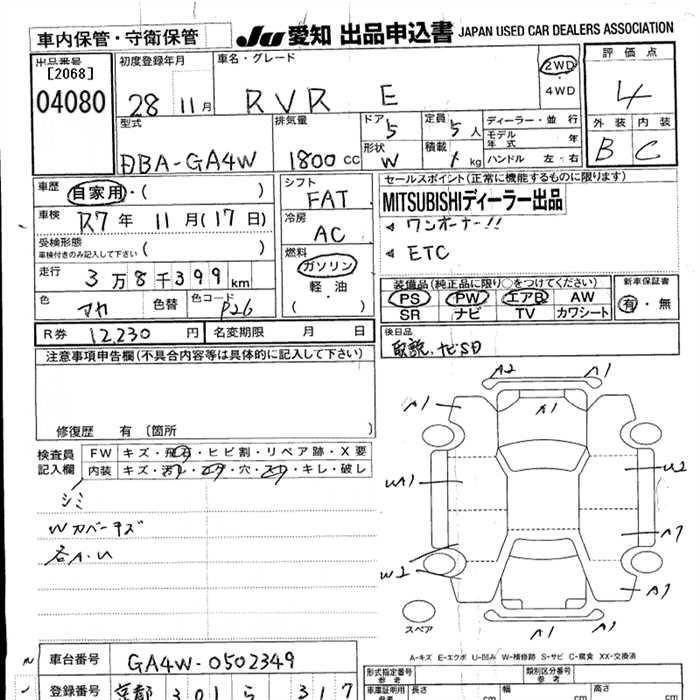 車内保管・守衛保管
JU 愛知 出品申込書 JAPAN USED CAR DEALERS ASSOCIATION
出品番号
[2068]
04080
初度登録年月
28 11月
車名・グレード
RVR E
2WD
・
4WD
評価点
4
外装 内装
B C
型式
DBA-GA4W
排気量
1800 CC
ドア
5
定員
5人
形状
W
積載
kg
ディーラー・並行
モデル年式 年
ハンドル 左・右
車歴
自家用・( )
車検
R7年 11月(17日)
受検形態
車検付きのみ記入して下さい ( )
走行
3万8千399km
色
色替
色コード
P26
シフト
FAT
冷房
AC
燃料
ガソリン
軽・油
( )
セールスポイント(正常に機能するものに限ります)
MITSUBISHIディーラー出品
ワンオーナー!!
ETC
装備品(純正品に限り○をつけてください)
PS PW エアB AW
SR ナビ TV カワシート
新車保証書
有・無
後日品
取説、ナビSD
R券 12,230円
名変期限 月 日
注意事項申告欄(不具合内容等は具体的に記入して下さい)
修復歴 有 (箇所 )
検査員記入欄
FW キズ・飛石・ヒビ割・リペア跡・X要
内装 キズ・汚レ・コゲ・穴・スリ・キレ・破レ
シミ
Wカバーキズ
各A・U
A2 A1
A1 A1
UA1 U2
A1
W2 A1
スペア
A1 A1
A-キズ E-エクボ U-凹み W-補修跡 S-サビ C-腐食 XX-交換済
車台番号
GA4W-0502349
登録番号
京都 301 ら 317
型式指定番号
参考
類別区分番号
参考
車庫証明用
長さ cm
幅 cm
高さ cm